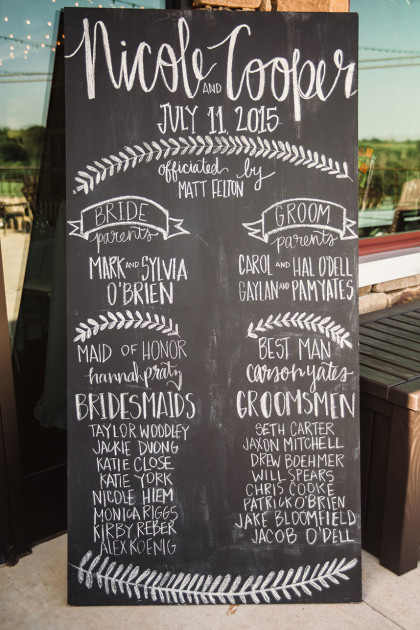 Nicole AND Cooper
JULY 11, 2015
officiated by
MATT FELTON
BRIDE
parents
MARK AND SYLVIA
O'BRIEN
GROOM
parents
CAROL AND HAL O'DELL
GAYLAN AND PAM YATES
MAID OF HONOR
hannah pratz
BRIDESMAIDS
TAYLOR WOODLEY
JACKIE DUONG
KATIE CLOSE
KATIE YORK
NICOLE HIEM
MONICA RIGGS
KIRBY REBER
ALEX KOENIG
BEST MAN
carson yates
GROOMSMEN
SETH CARTER
JAXON MITCHELL
DREW BOEHMER
WILL SPEARS
CHRIS COOKE
PATRICK O'BRIEN
JAKE BLOOMFIELD
JACOB O'DELL